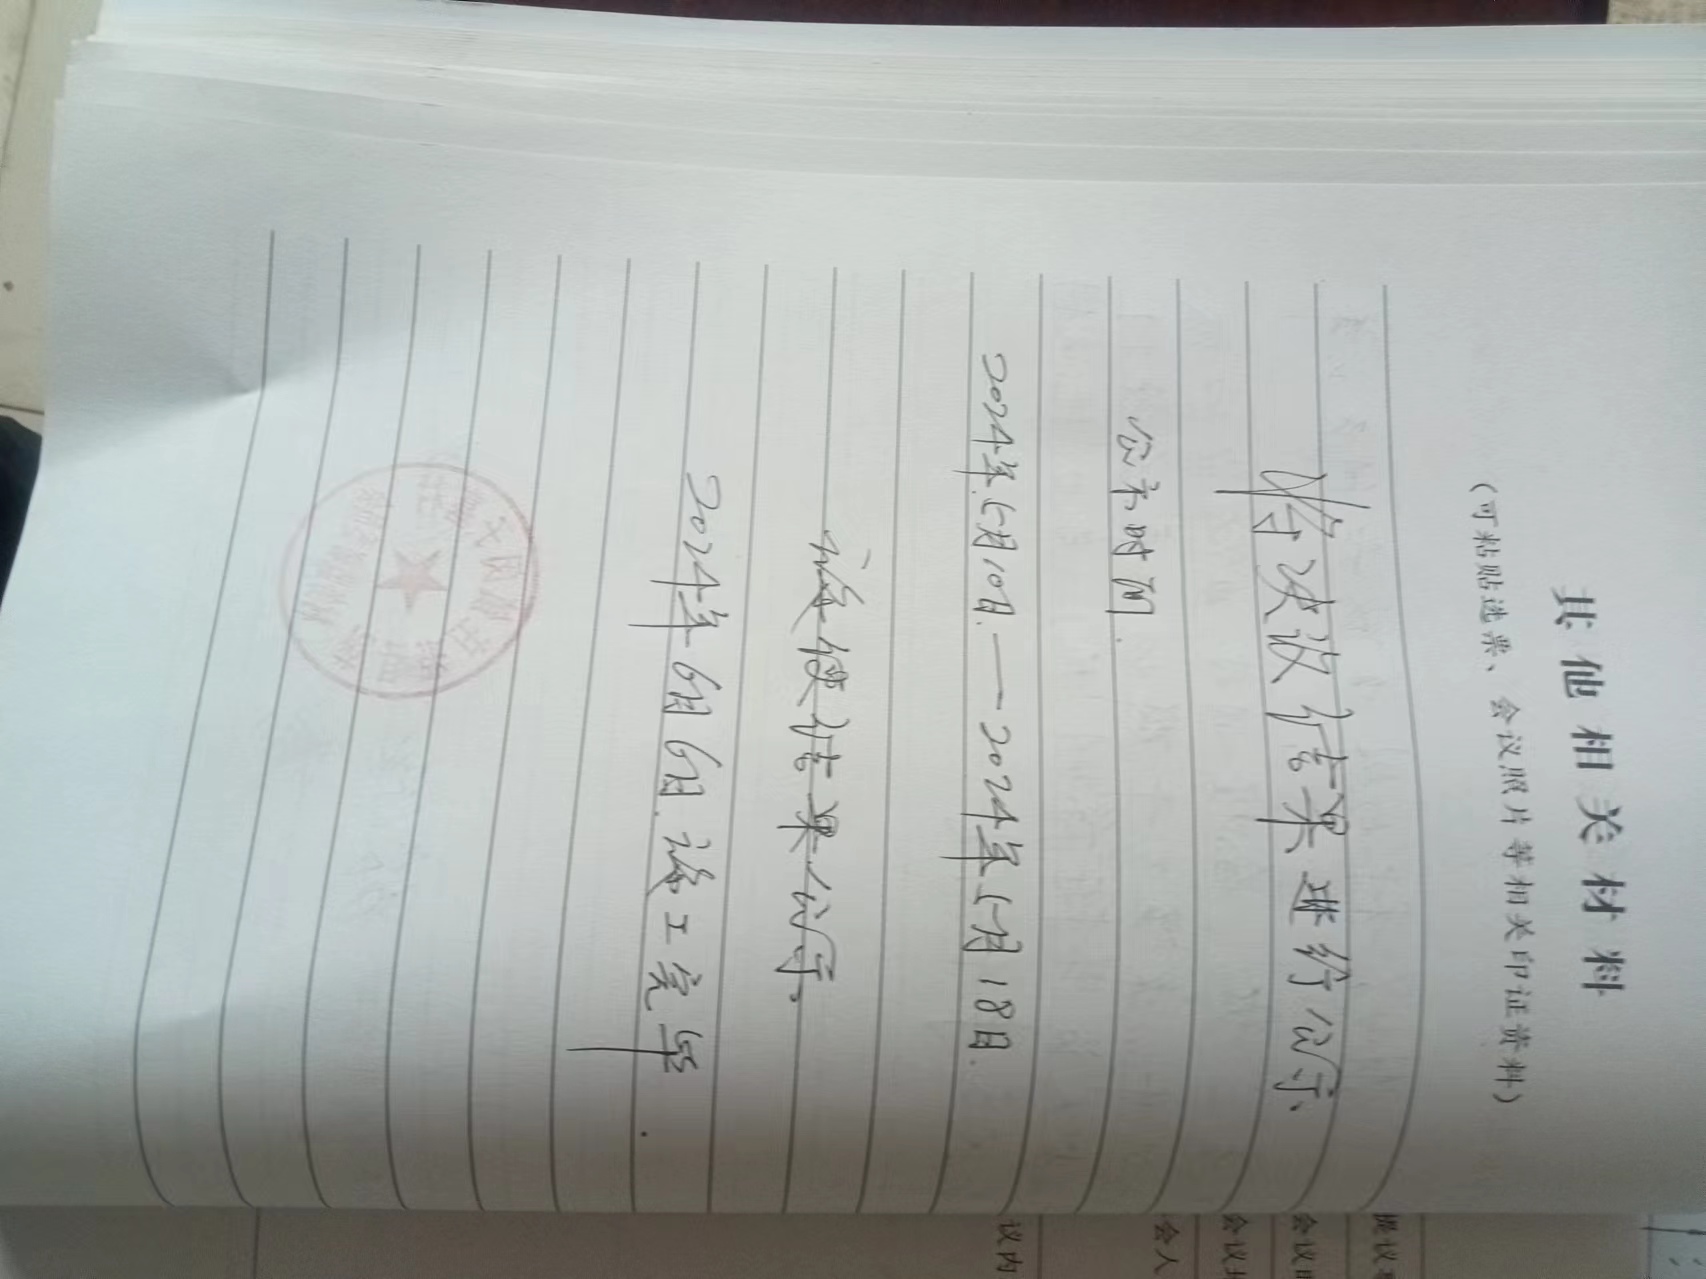 其他相关材料
(可粘贴选票、会议照片等相关印证资料)
将决议结果进行公示、
公示时间.
2024年6月10日.—2024年6月18日.
结果公示。
2024年6月6日.施工完毕.
会议
会议
会人
议内